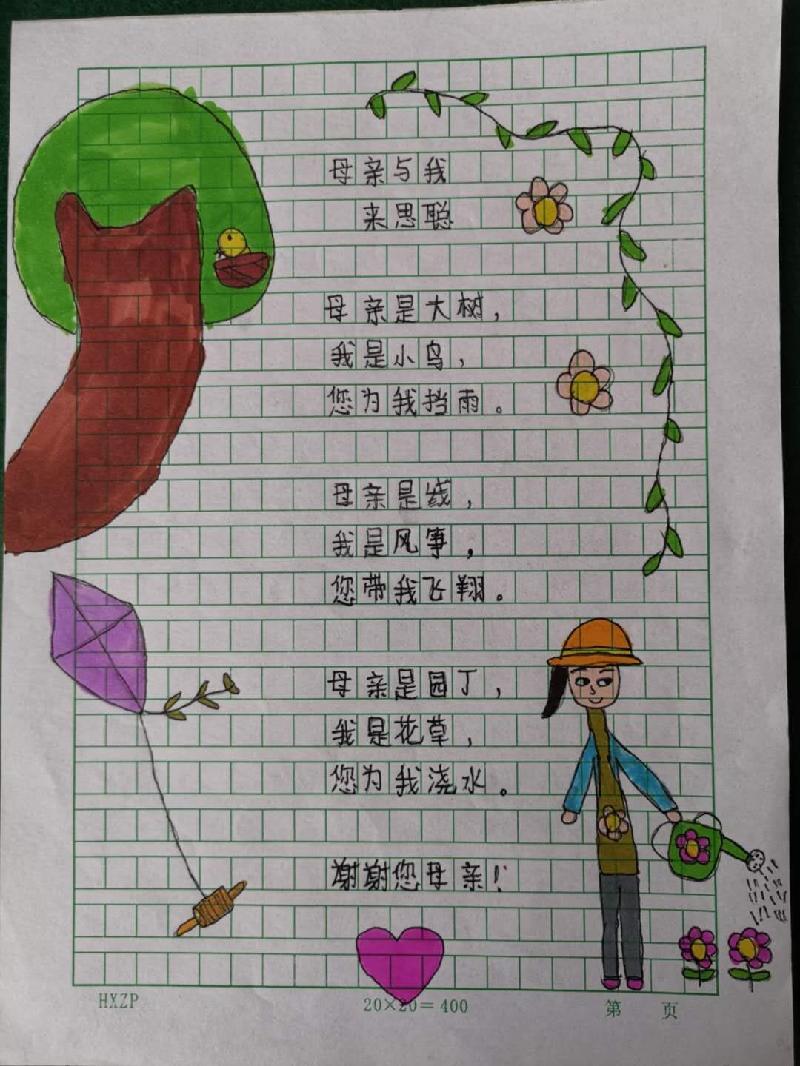 母亲与我
来思聪
母亲是大树，
我是小鸟，
您为我挡雨。
母亲是线，
我是风筝，
您带我飞翔。
母亲是园丁，
我是花草，
您为我浇水。
谢谢您母亲！
HXZP
20×20=400
第 页